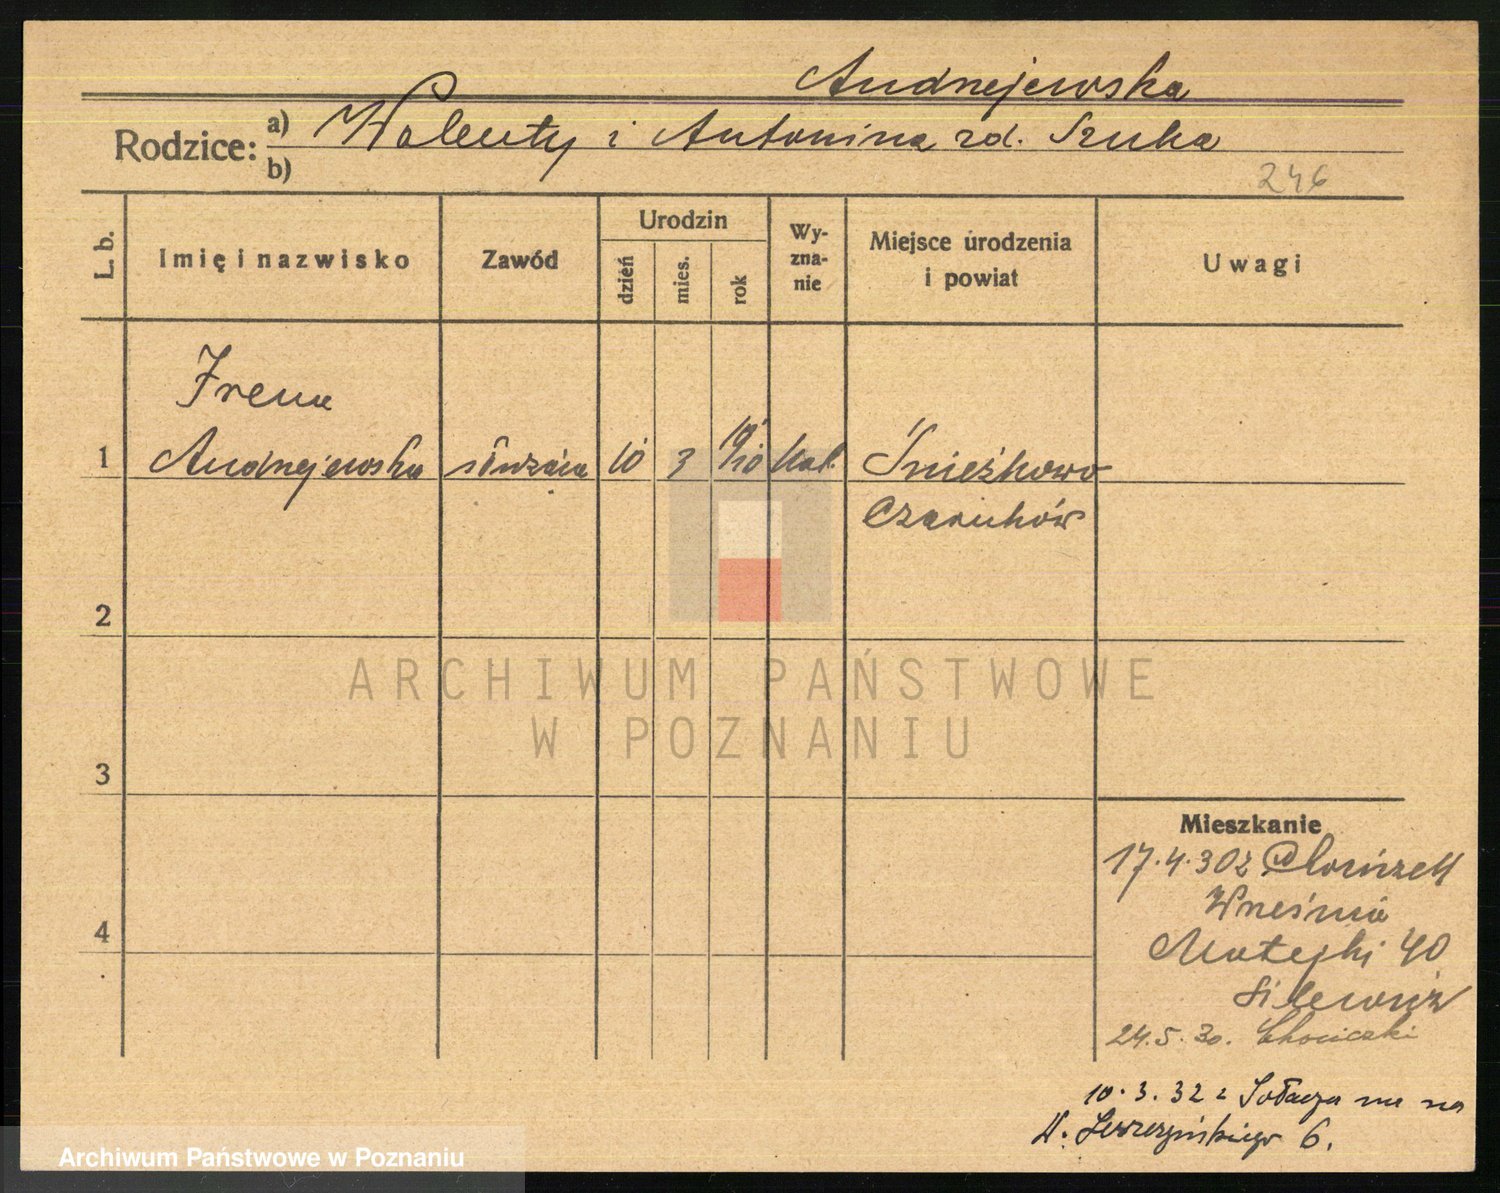 Andrzejewska
Rodzice: a) Walenty i Antonina zd. Szuka
b)
246
L. b. Imię i nazwisko Zawód Urodzin dzień mies. rok Wy-zna-nie Miejsce urodzenia i powiat Uwagi
Irena
1 Andrzejewska służąca 10 3 1910 kat. Śnieżkowo
Czarnków
2
ARCHIWUM PAŃSTWOWE
W POZNANIU
3
Mieszkanie
17.4.30 z
4 Września
Matejki 40
24.5.30.
10.3.32 z Sołacza na
6.
Archiwum Państwowe w Poznaniu